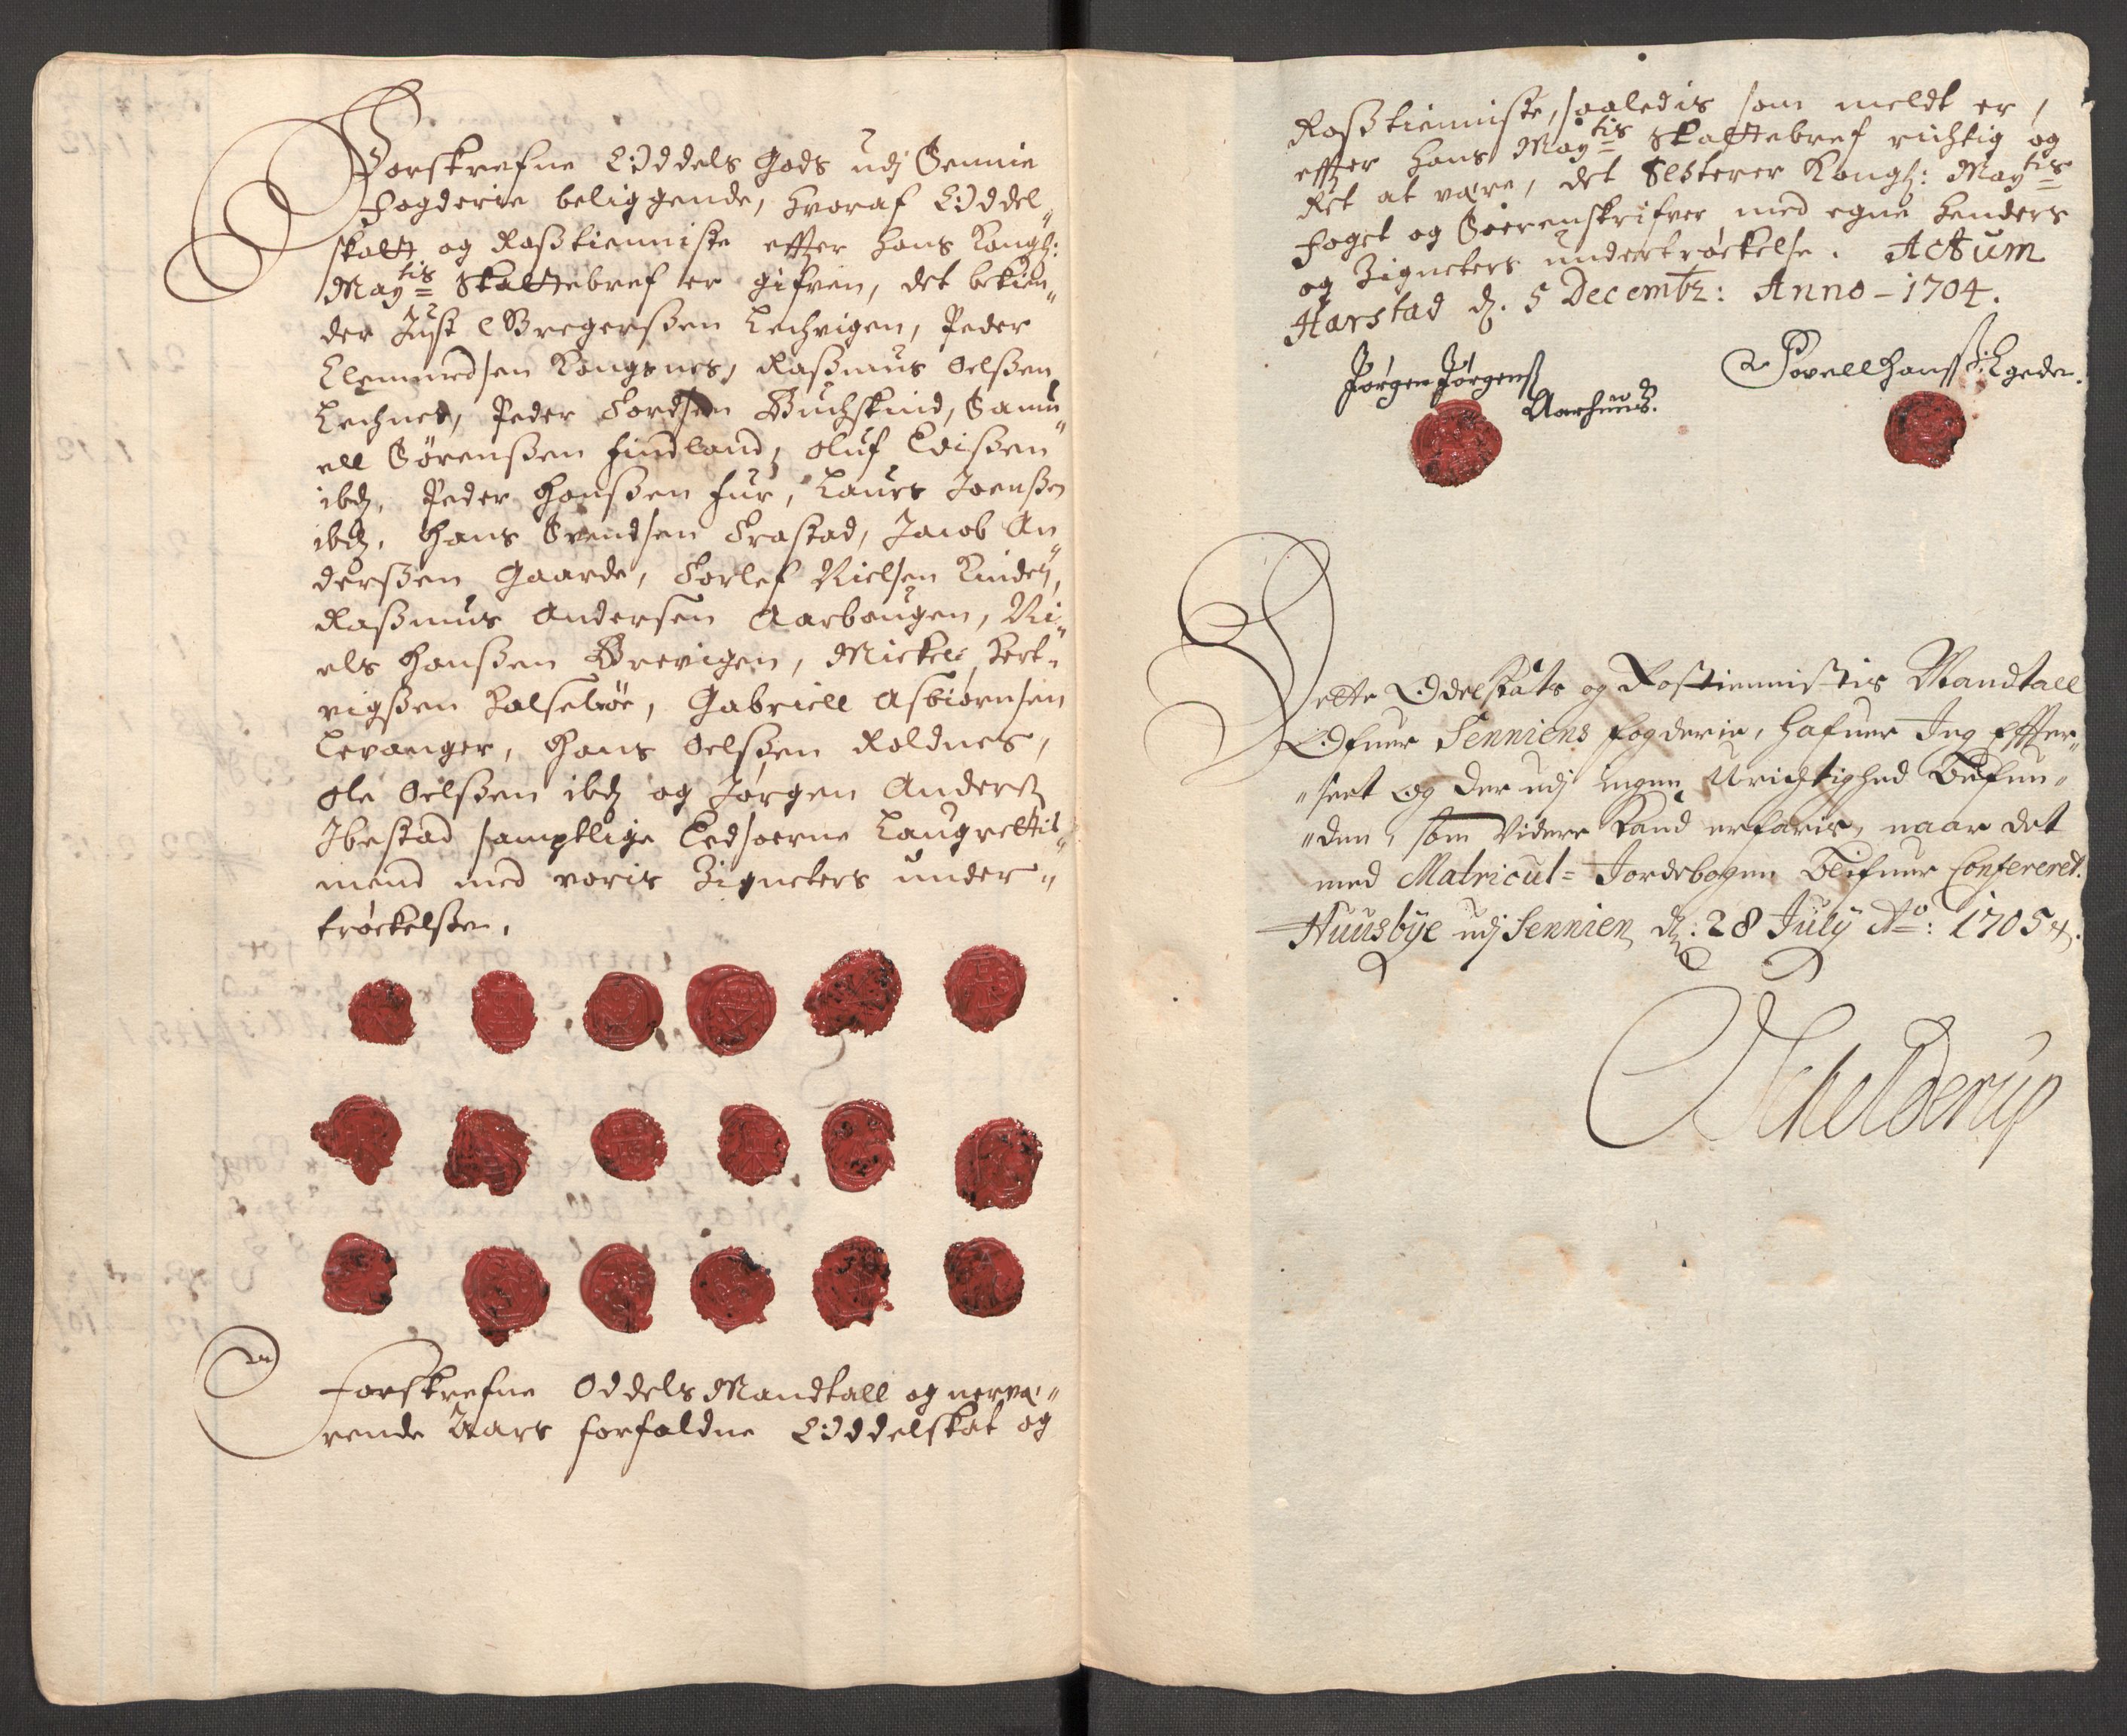 Forskrefne Oddels Gods udj Sennie
Fogderie beliggende, hvoraf Oddel„
skatt og Rosstienniste effter hans Kongl:
Maytis Skattebref er gifven, det bekien„
der Just Gregerssen Lechvigen, Peder
Clemmedsen Kongsnes, Rassmus Oelssen
Lechnes, Peder Tordsen Buchskind, Samu„
ell Sørenssen Findland, Oluf Edissen
ibd, Peder Hanssen Fur, Laurs Joenssen
ibd, Hans Svendsen Trastad, Jacob An„
derssen Gaarde, Torlef Nielsen Kinden,
Rassmus Andersen Aarbougen, Ni„
els Hanssen Brevigen, Mickel Hert„
vigssen Kalseløe, Gabriell Asbiørnsen
Levanger, Hans Oelssen Roldnes,
Ole Oelssen ibd og Jørgen Anderss
Ibestad samptlige Eedsoerne Laugrettis„
mend med voris Zigneters under„
tröckelssen.
Forskrefne Oddels Mandtall og nerve„
rende Aars forfaldne Oddelskat og
Rosstienniste, saaledis som meldt er,
effter hans Maytis Skattebref richtig og
Ret at være, det Attesterer Kongl: Maytis
Foget og Soerenskrifver med egne henders
og Zigneters undertröckelse. Actum
Harstad d. 5 Decembr: Anno - 1704.
Jørgen Jørgenss
Aarhuus.
Povell Hanss: Egede.
Dette Odelskats og Rostiennistis Mandtall
Ofuer Senniens fogderie, hafuer Jeg Effter„
„seet Og der udj ingen Urichtighed Befun„
„den, som Videre kand erfaris, naar det
med Matricul= Jordebogen blifuer Confereret.
Huusbye udj Sennien d: 28 July Ao: 1705.
Schelderup